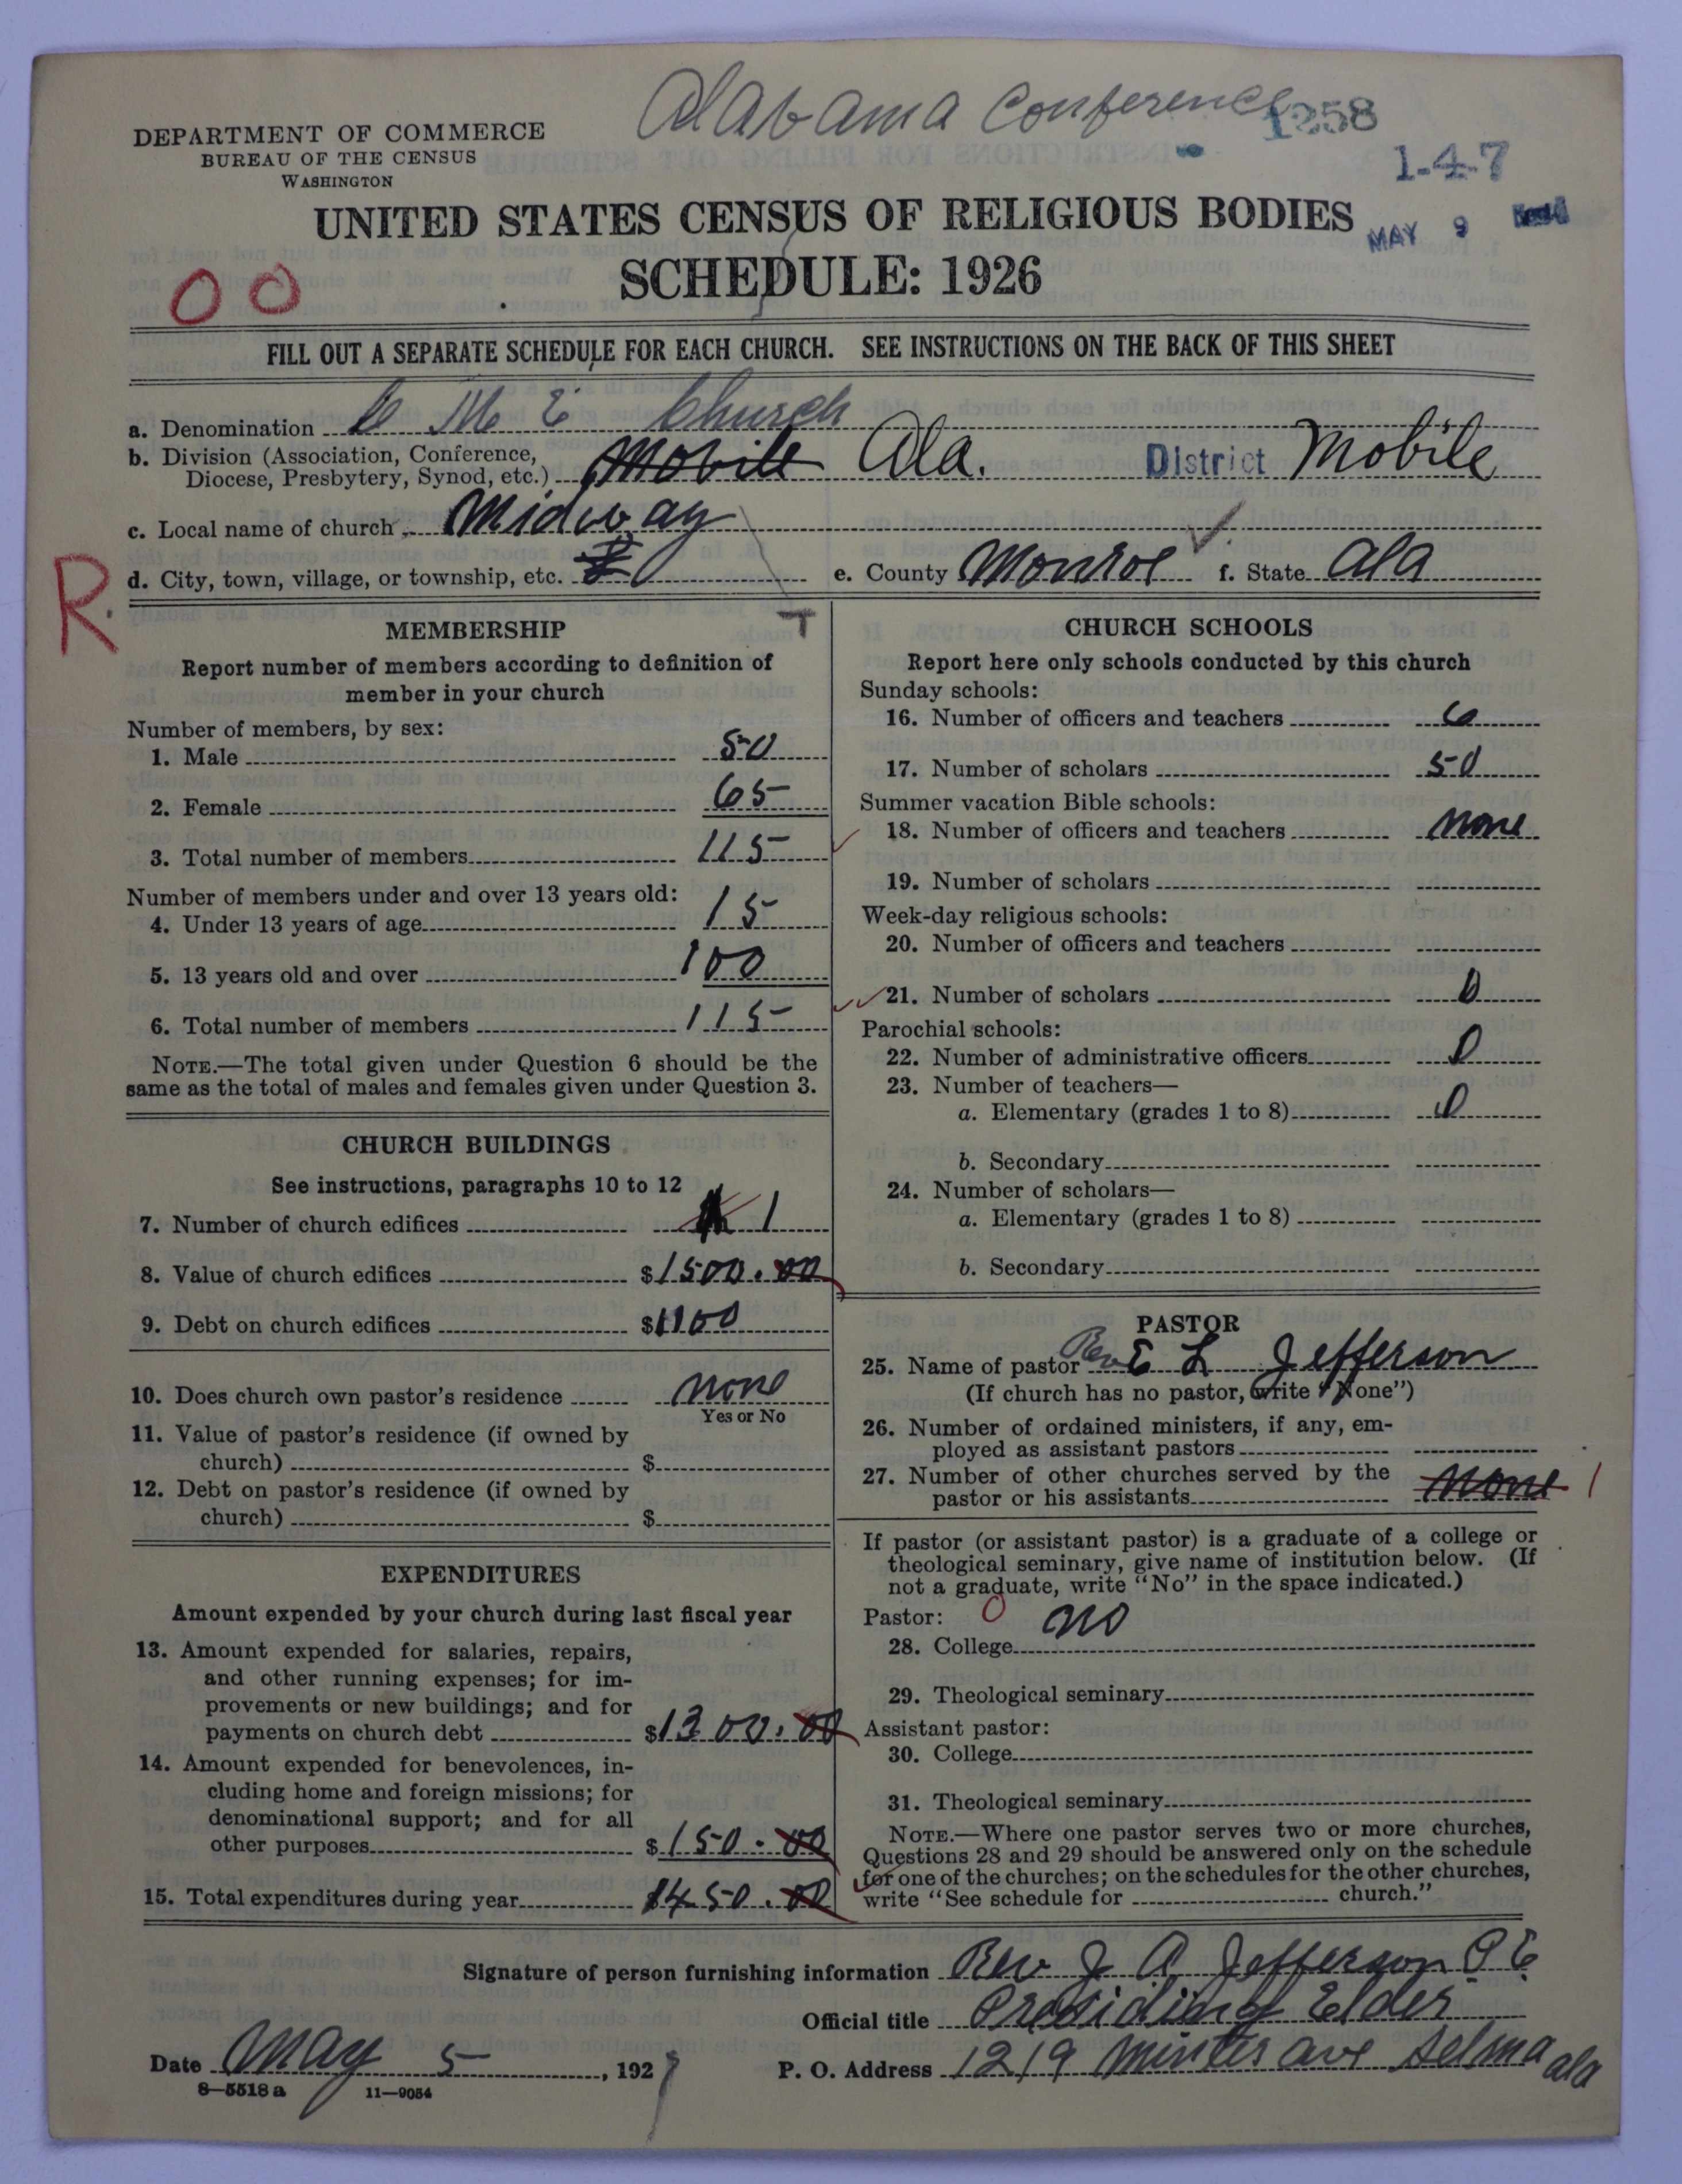 Alabama Conference
1258
1-4-7
DEPARTMENT OF COMMERCE
BUREAU OF THE CENSUS
WASHINGTON
UNITED STATES CENSUS OF RELIGIOUS BODIES
MAY 9
SCHEDULE: 1926
00
FILL OUT A SEPARATE SCHEDULE FOR EACH CHURCH. SEE INSTRUCTIONS ON THE BACK OF THIS SHEET
a. Denomination C M E Church
b. Division (Association, Conference,
Diocese, Presbytery, Synod, etc.) Mobile Ala. District Mobile
c. Local name of church Midway
d. City, town, village, or township, etc. e. County Monroe f. State Ala
R
MEMBERSHIP
Report number of members according to definition of
member in your church
Number of members, by sex:
1. Male 50
2. Female 65
3. Total number of members 115
Number of members under and over 13 years old:
4. Under 13 years of age 15
5. 13 years old and over 100
6. Total number of members 115
NOTE.—The total given under Question 6 should be the
same as the total of males and females given under Question 3.
CHURCH BUILDINGS
See instructions, paragraphs 10 to 12
7. Number of church edifices 1
8. Value of church edifices $1500.00
9. Debt on church edifices $1100
10. Does church own pastor's residence none
Yes or No
11. Value of pastor's residence (if owned by
church) $
12. Debt on pastor's residence (if owned by
church) $
EXPENDITURES
Amount expended by your church during last fiscal year
13. Amount expended for salaries, repairs,
and other running expenses; for im-
provements or new buildings; and for
payments on church debt $1300.00
14. Amount expended for benevolences, in-
cluding home and foreign missions; for
denominational support; and for all
other purposes $150.00
15. Total expenditures during year 1450.00
CHURCH SCHOOLS
Report here only schools conducted by this church
Sunday schools:
16. Number of officers and teachers 6
17. Number of scholars 50
Summer vacation Bible schools:
18. Number of officers and teachers none
19. Number of scholars
Week-day religious schools:
20. Number of officers and teachers
21. Number of scholars 0
Parochial schools:
22. Number of administrative officers 0
23. Number of teachers—
a. Elementary (grades 1 to 8) 0
b. Secondary
24. Number of scholars—
a. Elementary (grades 1 to 8)
b. Secondary
PASTOR
25. Name of pastor Rev E L Jefferson
(If church has no pastor, write "None")
26. Number of ordained ministers, if any, em-
ployed as assistant pastors
27. Number of other churches served by the
pastor or his assistants none 1
If pastor (or assistant pastor) is a graduate of a college or
theological seminary, give name of institution below. (If
not a graduate, write "No" in the space indicated.)
Pastor: 0 no
28. College
29. Theological seminary
Assistant pastor:
30. College
31. Theological seminary
NOTE.—Where one pastor serves two or more churches,
Questions 28 and 29 should be answered only on the schedule
for one of the churches; on the schedules for the other churches,
write "See schedule for church."
Signature of person furnishing information Rev J A Jefferson P E
Official title Presiding Elder
Date May 5, 1927 P. O. Address 1219 Minter ave Selma ala
8—5518 a 11—9054